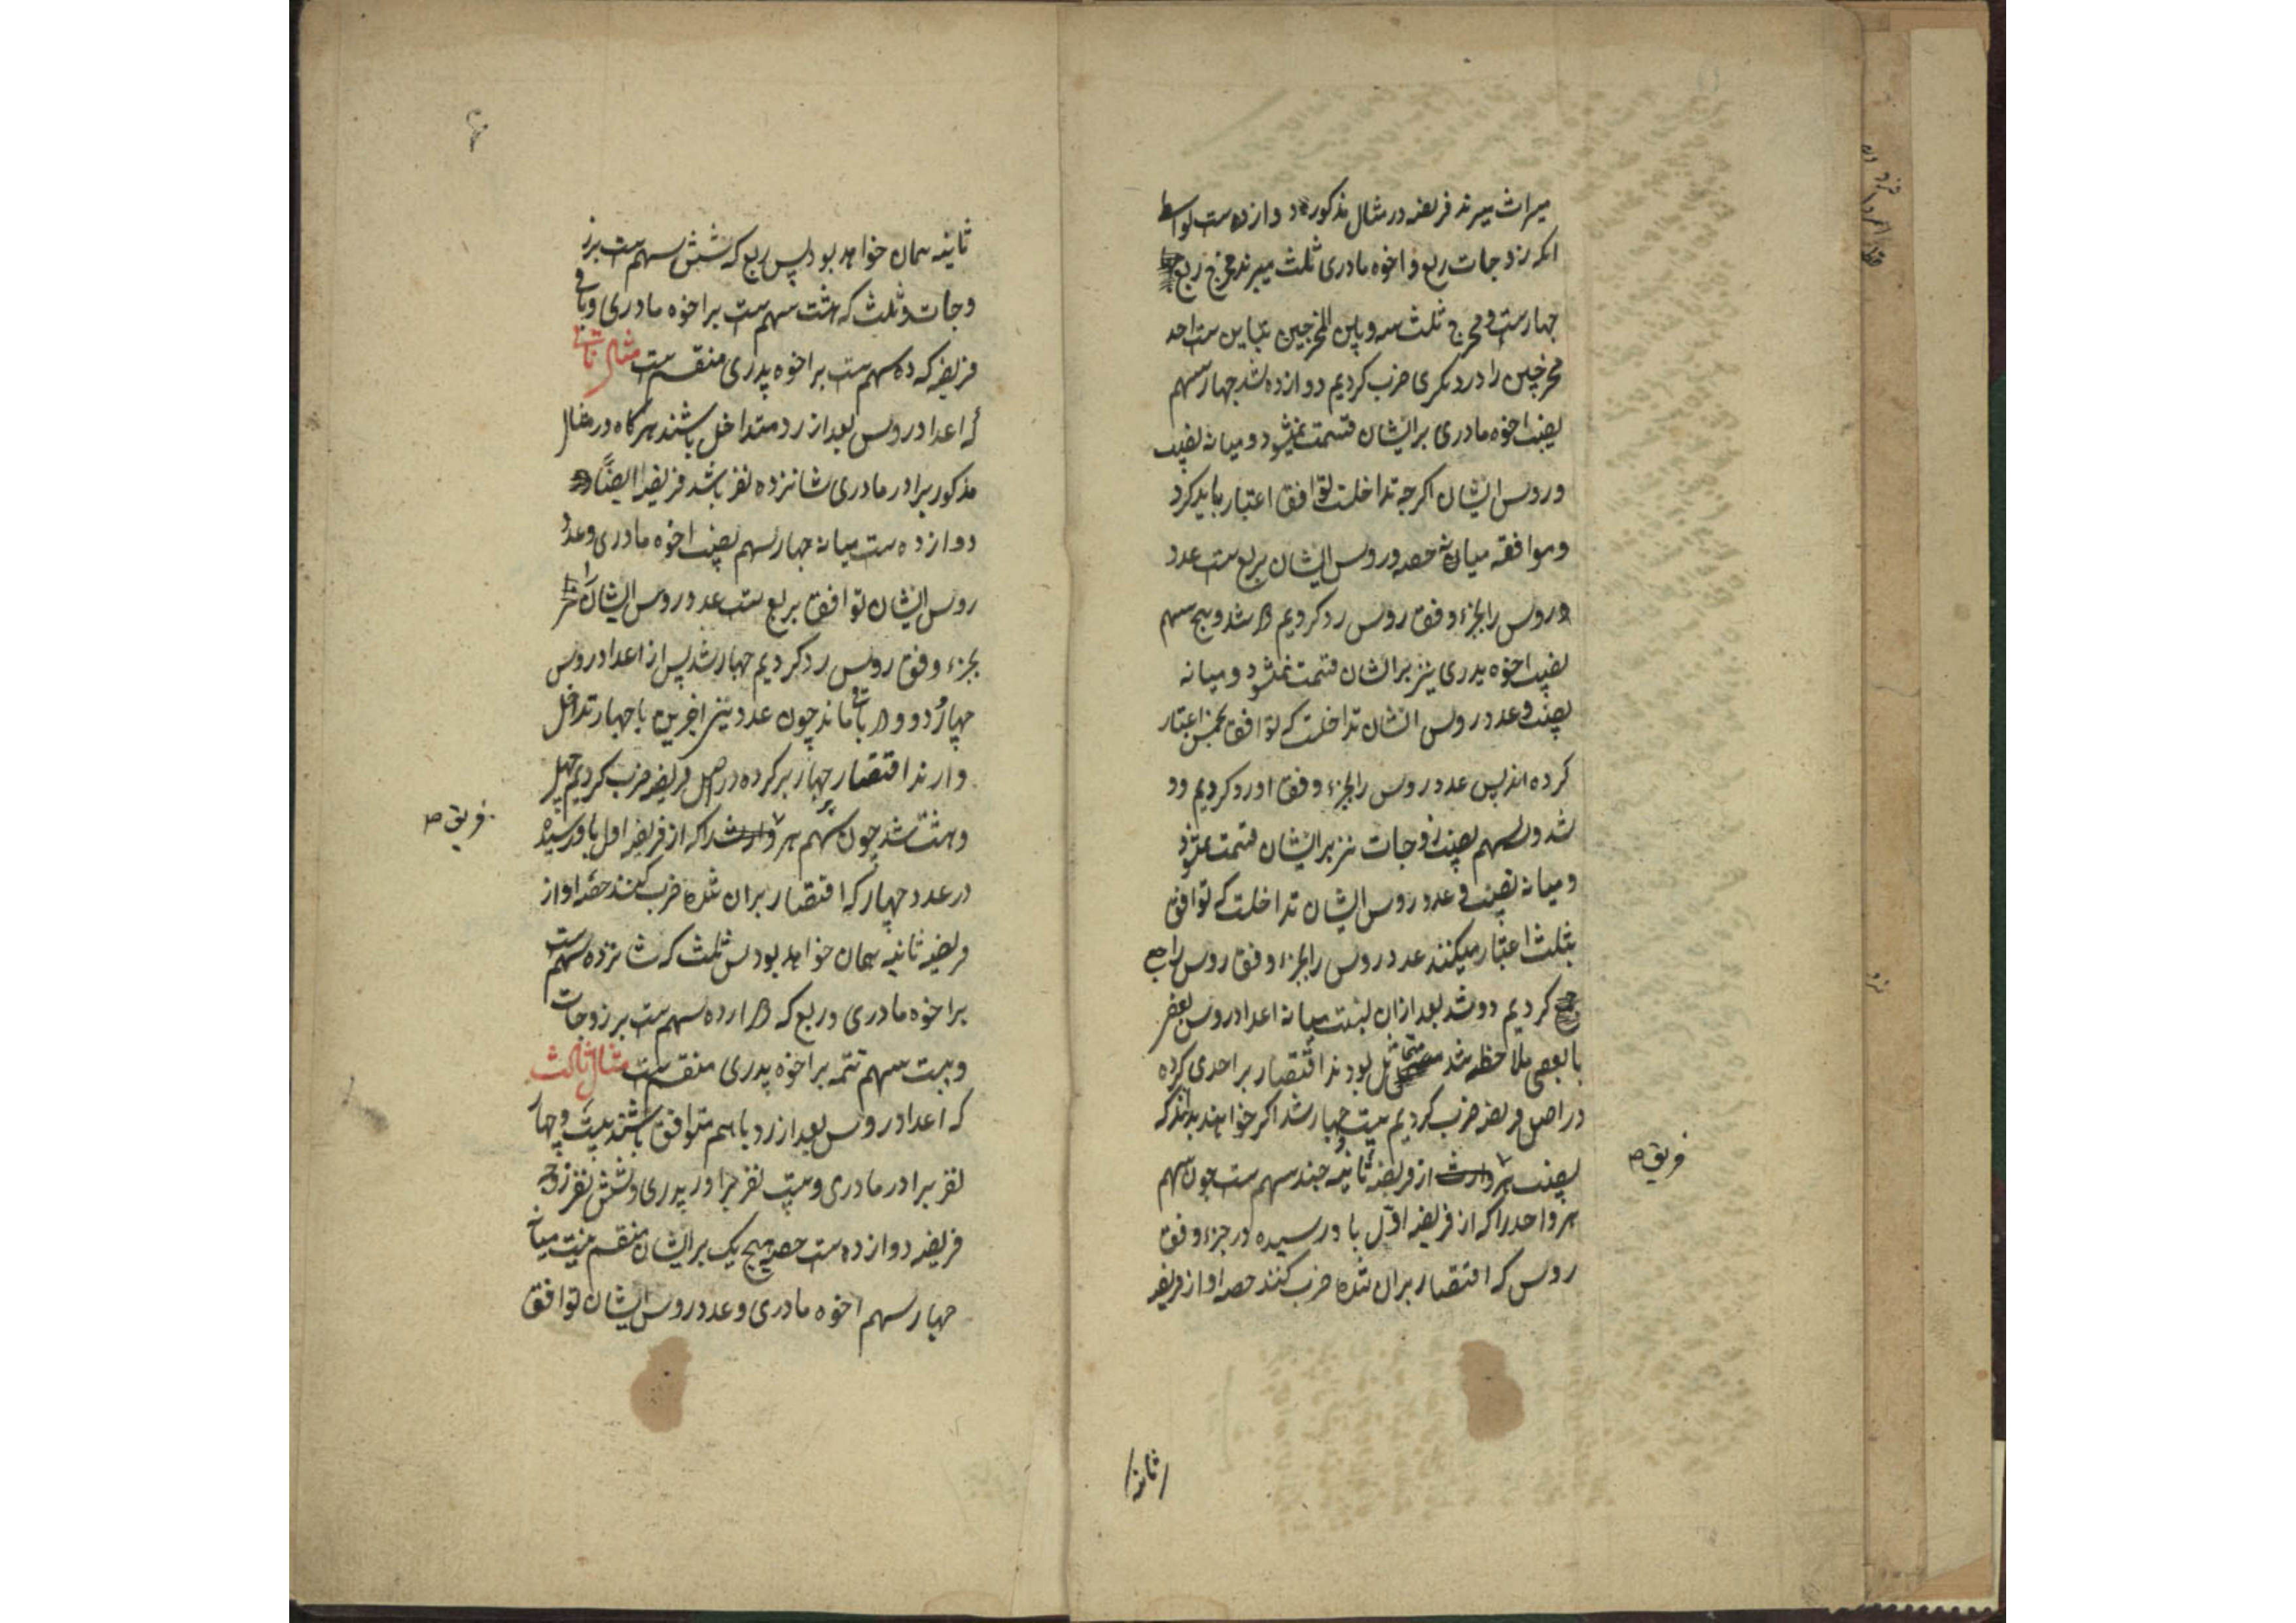 میراث میبرند فریضه در مثال مذکور دوازده است بواسطه
انکه زوجات ربع و اخوه مادری ثلث میبرند مخرج ربع
چهارست و مخرج ثلث سه و بین المخرجین تباین ست احد
مخرجین را در دیکری ضرب کردیم دوازده شد چهار سهم
نصیب اخوه مادری بر ایشان قسمت نمیشود و میانه نصیب
و روس ایشان اکرچه تداخلست توافق اعتبار باید کرد
و موافقه میانه حصه و روس ایشان بربع ست عدد
روس را بجزء وفق روس رد کردیم دو شد و پنج سهم
نصیب اخوه پدری نیز بر ایشان قسمت نمیشود و میانه
نصیب و عدد روس ایشان تداخلست که توافق بخمس اعتبار
کرده اند پس عدد روس را بجزء وفق او رد کردیم دو
شد و سه سهم نصیب زوجات نیز بر ایشان قسمت نمیشود
و میانه نصیب و عدد روس ایشان تداخلست که توافق
بثلث اعتبار میکنند عدد روس را بجزء وفق روس راجع
کردیم دو شد بعد ازان نسبت میانه اعداد روس بعضی
با بعضی ملاحظه شد متماثل بودند اقتصار بر احدی کرده
در اصل فریضه ضرب کردیم بیست و چهار شد اکر خواهند بدانند که
نصیب هر وارث از فریضه ثانیه چند سهم ست چون سهم
هر واحد را که از فریضه اول باو رسیده در جزء وفق
روس که اقتصار بران شده ضرب کنند حصه او از فریضه
ثانیه
فریق ص
ثانیه همان خواهد بود پس ربع که شش سهم ست بر ز
وجات و ثلث که هشت سهم ست بر اخوه مادری و باقی
فریضه که ده سهم ست بر اخوه پدری منقسم ست مثال ثانی
که اعداد روس بعد از رد متداخل باشند هرکاه در مثال
مذکور برادر مادری شانزده نفر باشد فریضه ایضاً
دوازده ست میانه چهار سهم نصیب اخوه مادری و عدد
روس ایشان توافق بربع ست عدد روس ایشان را
بجزء وفق روس رد کردیم چهار شد پس از اعداد روس
چهار و دو و دو باقی ماند چون عددین اخرین با چهار تداخل
دارند اقتصار بر چهار کرده در اصل فریضه ضرب کردیم چهل
و هشت شد چون سهم هر وارث را که از فریضه اول باو رسیده
در عدد چهار که اقتصار بران شده ضرب کنند حصه او از
فریضه ثانیه همان خواهد بود پس ثلث که شانزده سهم ست
بر اخوه مادری و ربع که دوازده سهم ست بر زوجات
و بیست سهم تتمه بر اخوه پدری منقسم ست مثال ثالث
که اعداد روس بعد از رد با هم متوافق باشند بیست و چهار
نفر برادر مادری و بیست نفر برادر پدری و شش نفر زوجه
فریضه دوازده ست حصه هیچ یک بر ایشان منقسم نیست میانه
چهار سهم اخوه مادری و عدد روس ایشان توافق
فریق ص